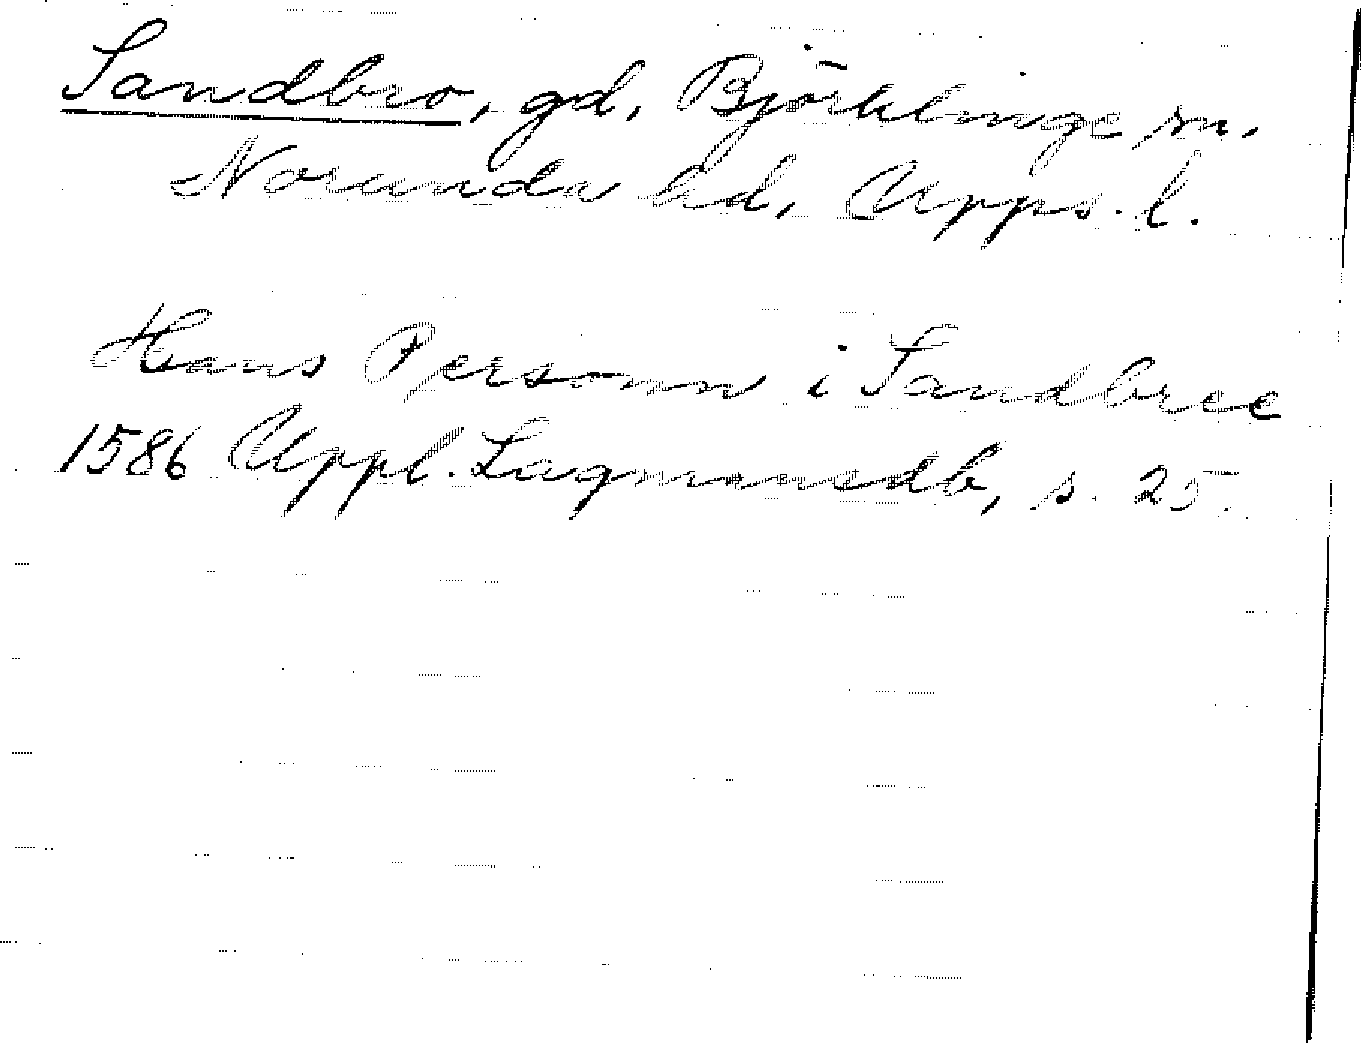 Sandbro, gd, Björklinge sn.
Norunda hd, Upps. l.
Hans Personn i Sandbree
1586 Uppl. Lagmansdb, s. 25.